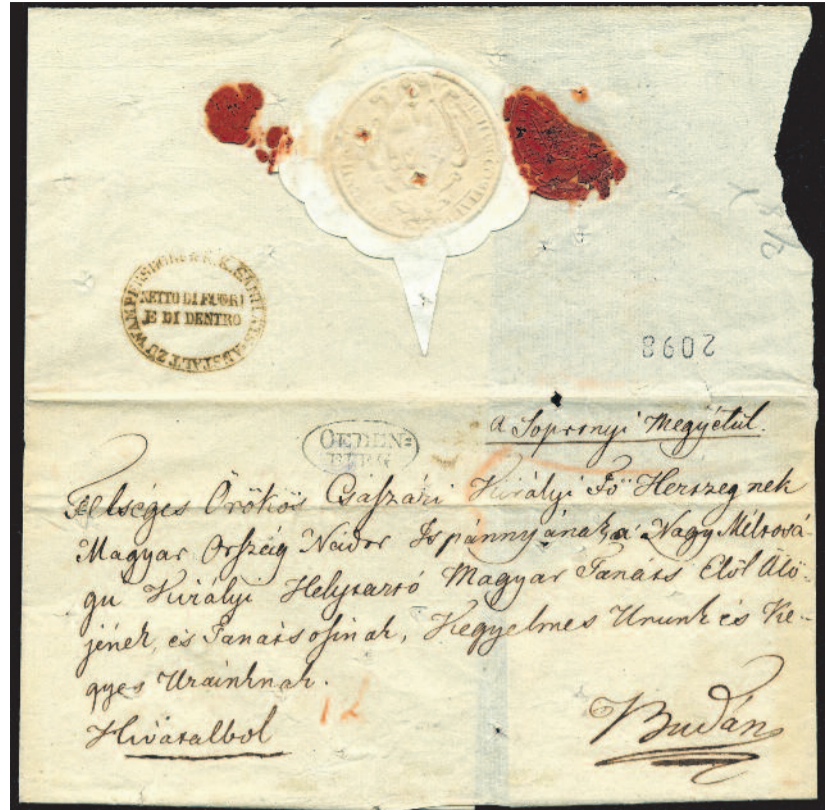 K.K. ZU WAMPERSDORF
NETTO DI FUORI
E DI DENTRO
2098
OEDEN=
BURG
a Sopronyi Megyétül.
Felséges Örökös Császári Királyi Fő Herczegnek
Magyar Ország Nádor Ispánnyának, a' Nagy Méltosá-
gu Királyi Helytartó Magyar Tanáts Elöl Ülö-
jének, és Tanátsosinak, Kegyelmes Urunk és Ke-
gyes Urainknak.
12
Hivatalbol
Budán